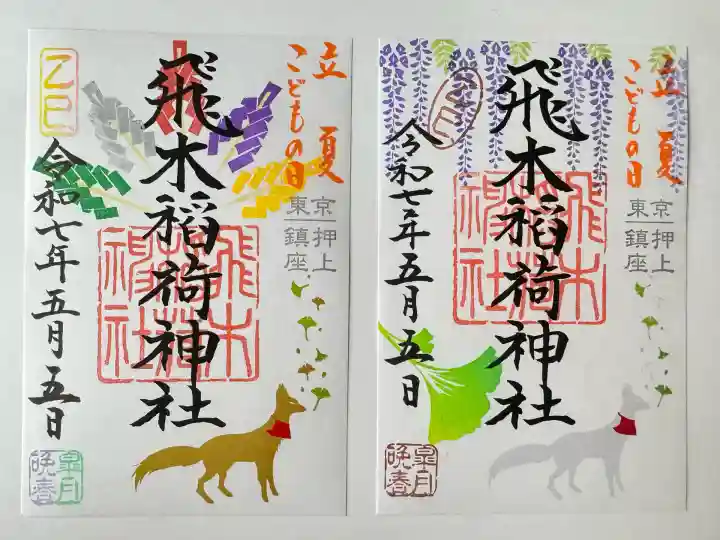 立夏
こどもの日
乙巳
飛木稲荷神社
東京押上鎮座
飛木稲荷神社
令和七年五月五日
皐月
晩春
立夏
こどもの日
乙巳
飛木稲荷神社
東京押上鎮座
飛木稲荷神社
令和七年五月五日
皐月
晩春